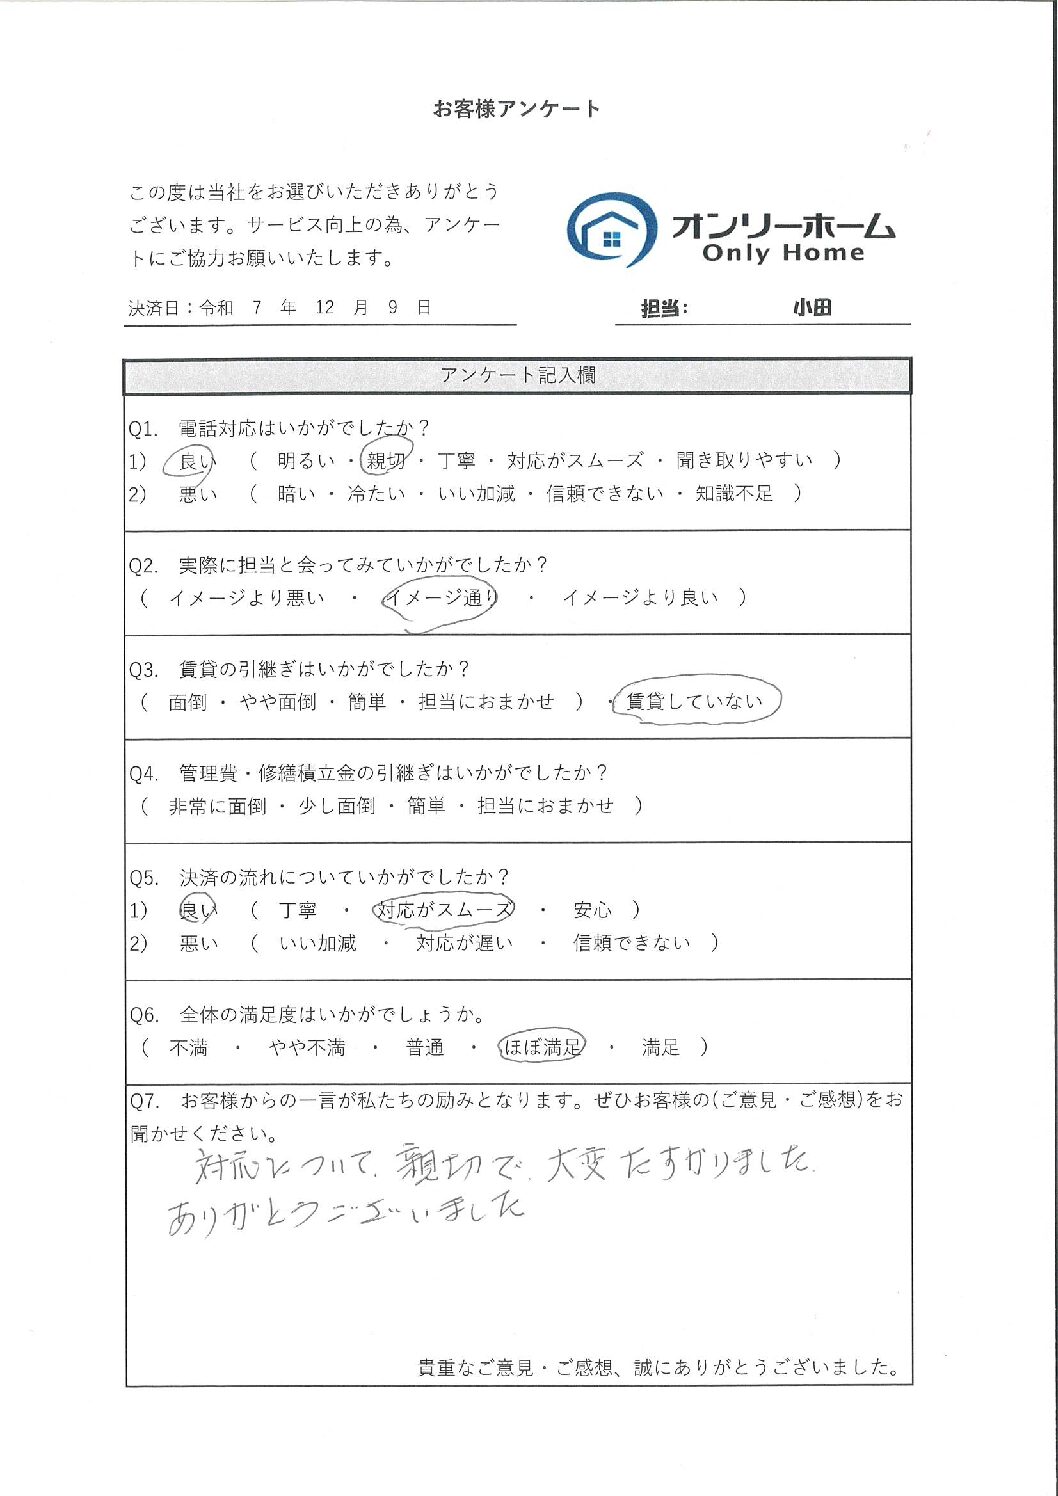 お客様アンケート
この度は当社をお選びいただきありがとう
ございます。サービス向上の為、アンケー
トにご協力お願いいたします。
オンリーホーム
Only Home
決済日：令和 7 年 12 月 9 日
担当： 小田
アンケート記入欄
Q1. 電話対応はいかがでしたか？
1) 良い （ 明るい ・ 親切 ・ 丁寧 ・ 対応がスムーズ ・ 聞き取りやすい ）
2) 悪い （ 暗い ・ 冷たい ・ いい加減 ・ 信頼できない ・ 知識不足 ）
Q2. 実際に担当と会ってみていかがでしたか？
（ イメージより悪い ・ イメージ通り ・ イメージより良い ）
Q3. 賃貸の引継ぎはいかがでしたか？
（ 面倒 ・ やや面倒 ・ 簡単 ・ 担当におまかせ ） ・ 賃貸していない
Q4. 管理費・修繕積立金の引継ぎはいかがでしたか？
（ 非常に面倒 ・ 少し面倒 ・ 簡単 ・ 担当におまかせ ）
Q5. 決済の流れについていかがでしたか？
1) 良い （ 丁寧 ・ 対応がスムーズ ・ 安心 ）
2) 悪い （ いい加減 ・ 対応が遅い ・ 信頼できない ）
Q6. 全体の満足度はいかがでしょうか。
（ 不満 ・ やや不満 ・ 普通 ・ ほぼ満足 ・ 満足 ）
Q7. お客様からの一言が私たちの励みとなります。ぜひお客様の(ご意見・ご感想)をお
聞かせください。
対応について、親切で、大変たすかりました.
ありがとうございました
貴重なご意見・ご感想、誠にありがとうございました。